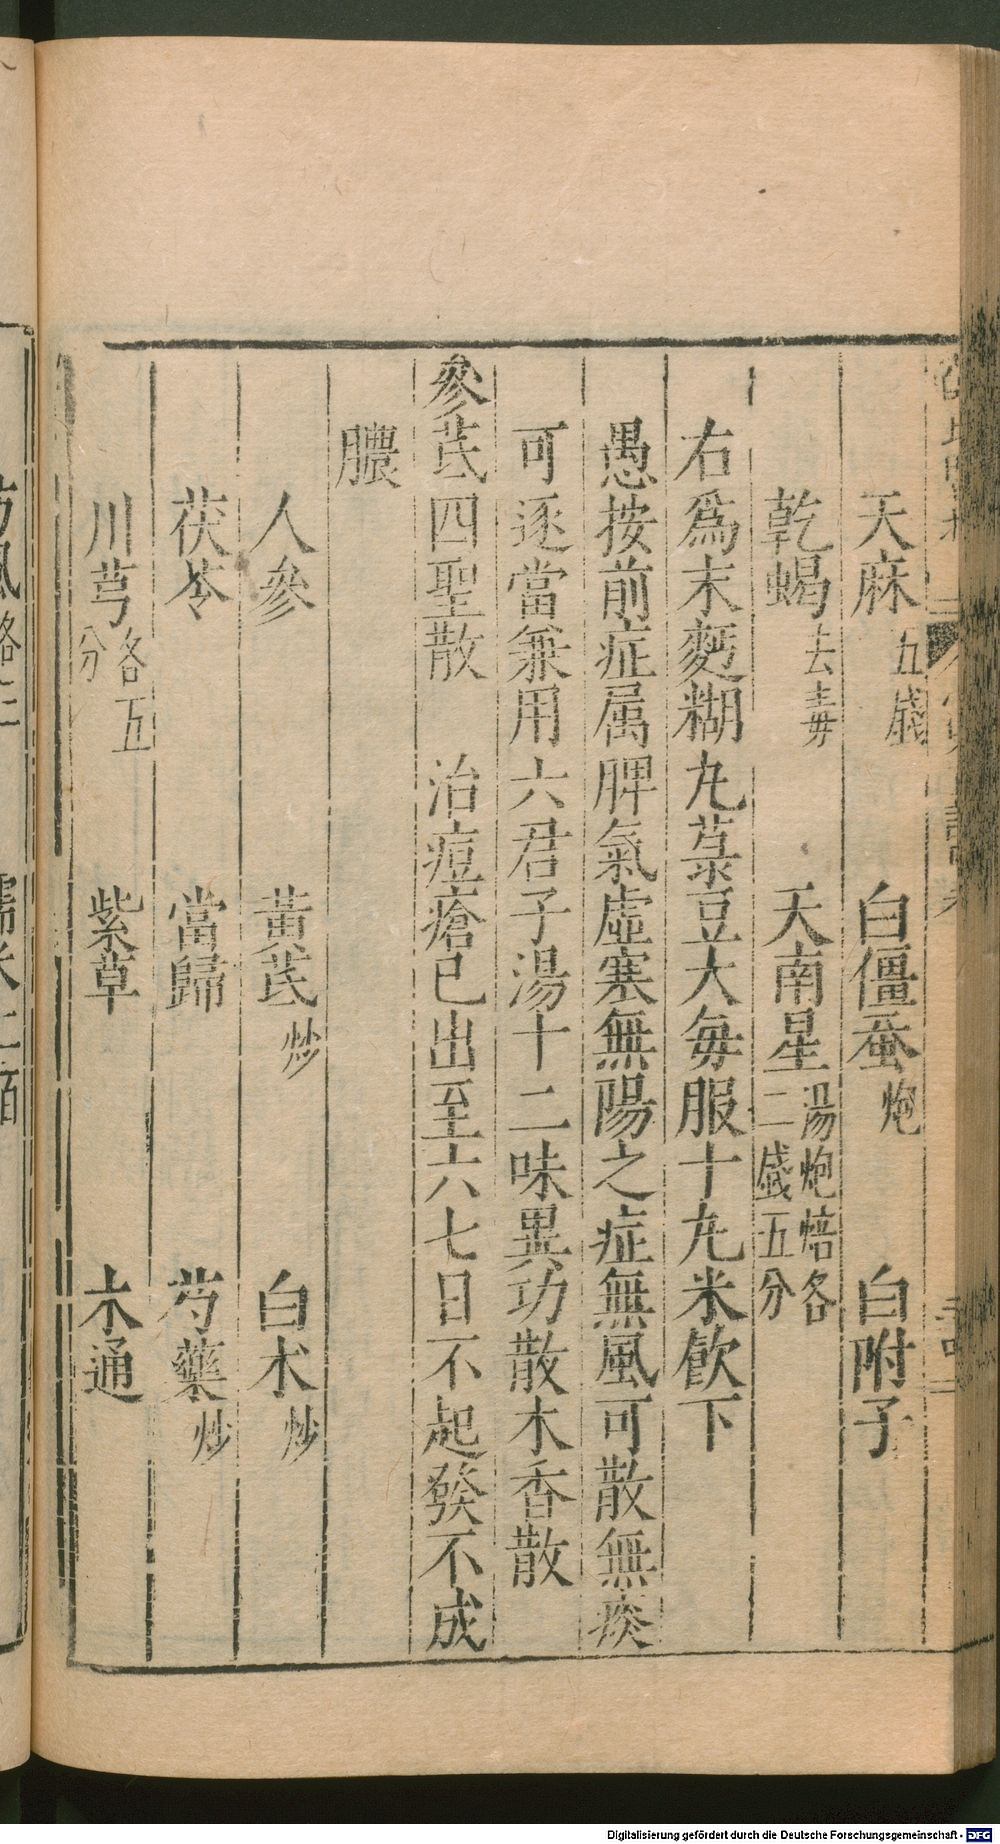 天麻五戔 白僵蚕炮 白附子
乾蝎去毒 天南星湯炮焙各二戔五分
右爲末麪糊𠃵菉豆大每服十𠃵米飮下
愚按前症属脾氣虛塞無陽之症無風可散無痰
可逐當兼用六君子湯十二味異功散木香散
參芪四聖散 治痘瘡已出至六七日不起發不成
膿
人參 黃芪炒 白朮炒
茯苓 當歸 芍藥炒
川芎各五分 紫草 木通
Digitalisierung gefördert durch die Deutsche Forschungsgemeinschaft - DFG